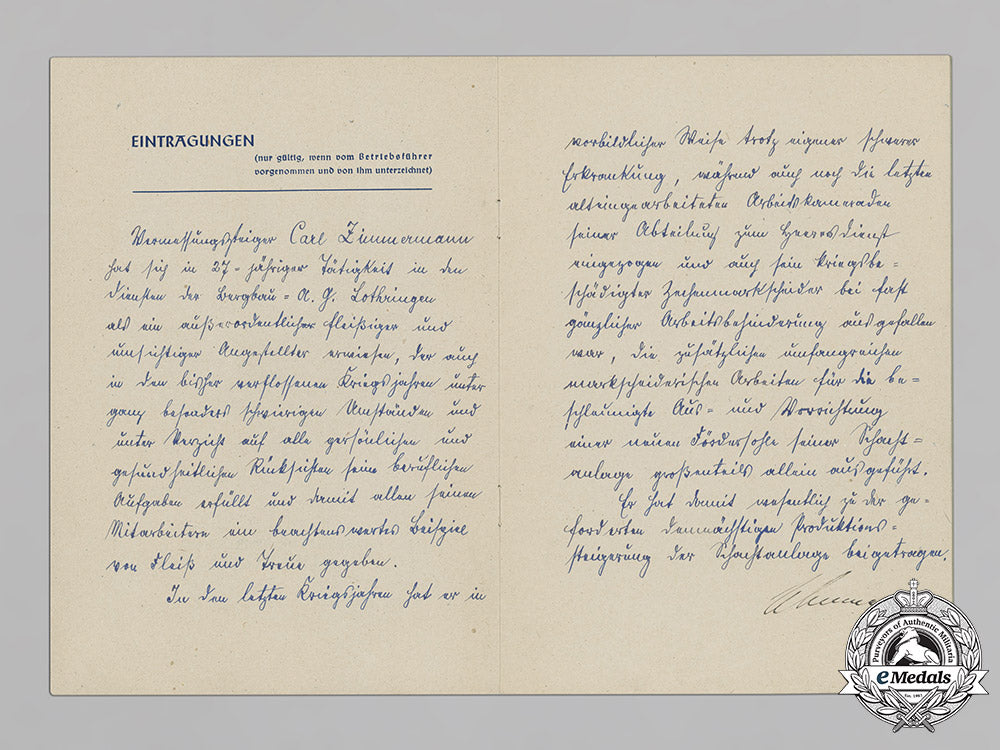 EINTRAGUNGEN
(nur gültig, wenn vom Betriebsführer
vorgenommen und von ihm unterzeichnet)
Vermessungssteiger Carl Zimmermann
hat sich in 27-jähriger Tätigkeit in den
Diensten der Bergbau-A. G. Lothringen
als ein außerordentlicher fleißiger und
umsichtiger Angestellter erwiesen, der auch
in den bisher verflossenen Kriegsjahren unter
ganz besonders schwierigen Umständen und
unter Verzicht auf alle persönlichen und
gesundheitlichen Rücksichten seine beruflichen
Aufgaben erfüllt und damit allen seinen
Mitarbeitern ein beachtenswertes Beispiel
von Fleiß und Treue gegeben.
In den letzten Kriegsjahren hat er in
vorbildlicher Weise trotz eigener schwerer
Erkrankung, während auch noch die letzten
alteingearbeiteten Arbeitskameraden
seiner Abteilung zum Heeresdienst
eingezogen und auch sein kriegsbe=
schädigter Zechenmarkscheider bei fast
gänzlicher Arbeitsbehinderung ausgefallen
war, die zusätzlichen umfangreichen
markscheiderischen Arbeiten für die be=
schleunigte Aus- und Vorrichtung
einer neuen Fördersohle seiner Schacht=
anlage großenteils allein ausgeführt.
Er hat damit wesentlich zu der ge=
forderten demnächstigen Produktions=
steigerung der Schachtanlage beigetragen.
Purveyors of Authentic Militaria
eMedals
Est. 1967